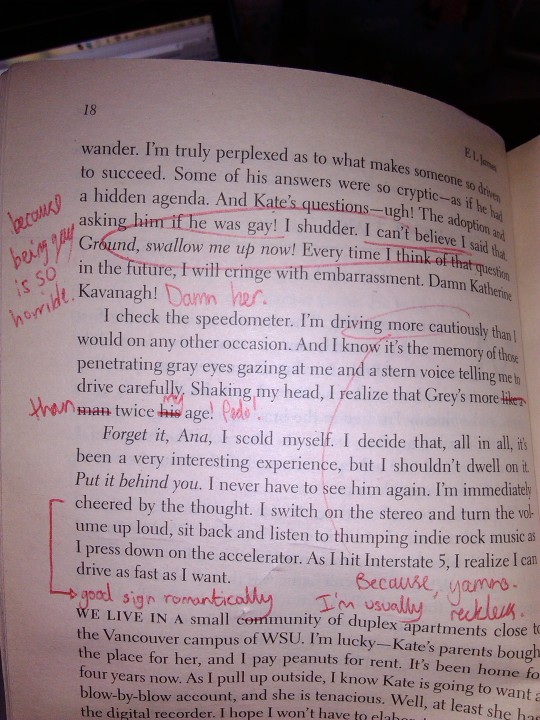 18
E L James
wander. I'm truly perplexed as to what makes someone so driven
to succeed. Some of his answers were so cryptic—as if he had
a hidden agenda. And Kate's questions—ugh! The adoption and
asking him if he was gay! I shudder. I can't believe I said that.
Ground, swallow me up now! Every time I think of that question
in the future, I will cringe with embarrassment. Damn Katherine
Kavanagh! Damn her.
because
being gay
is SO
horrible.
I check the speedometer. I'm driving more cautiously than I
would on any other occasion. And I know it's the memory of those
penetrating gray eyes gazing at me and a stern voice telling me to
drive carefully. Shaking my head, I realize that Grey's more like a
my
than man twice his age! Pedo!
Forget it, Ana, I scold myself. I decide that, all in all, it's
been a very interesting experience, but I shouldn't dwell on it.
Put it behind you. I never have to see him again. I'm immediately
cheered by the thought. I switch on the stereo and turn the vol-
ume up loud, sit back and listen to thumping indie rock music as
I press down on the accelerator. As I hit Interstate 5, I realize I can
drive as fast as I want.
good sign romantically
Because, yamno.
I'm usually reckless.
WE LIVE IN A small community of duplex apartments close to
the Vancouver campus of WSU. I'm lucky—Kate's parents bough
the place for her, and I pay peanuts for rent. It's been home fo
four years now. As I pull up outside, I know Kate is going to want a
blow-by-blow account, and she is tenacious. Well, at least she ha
the digital recorder. I hope I won't have to